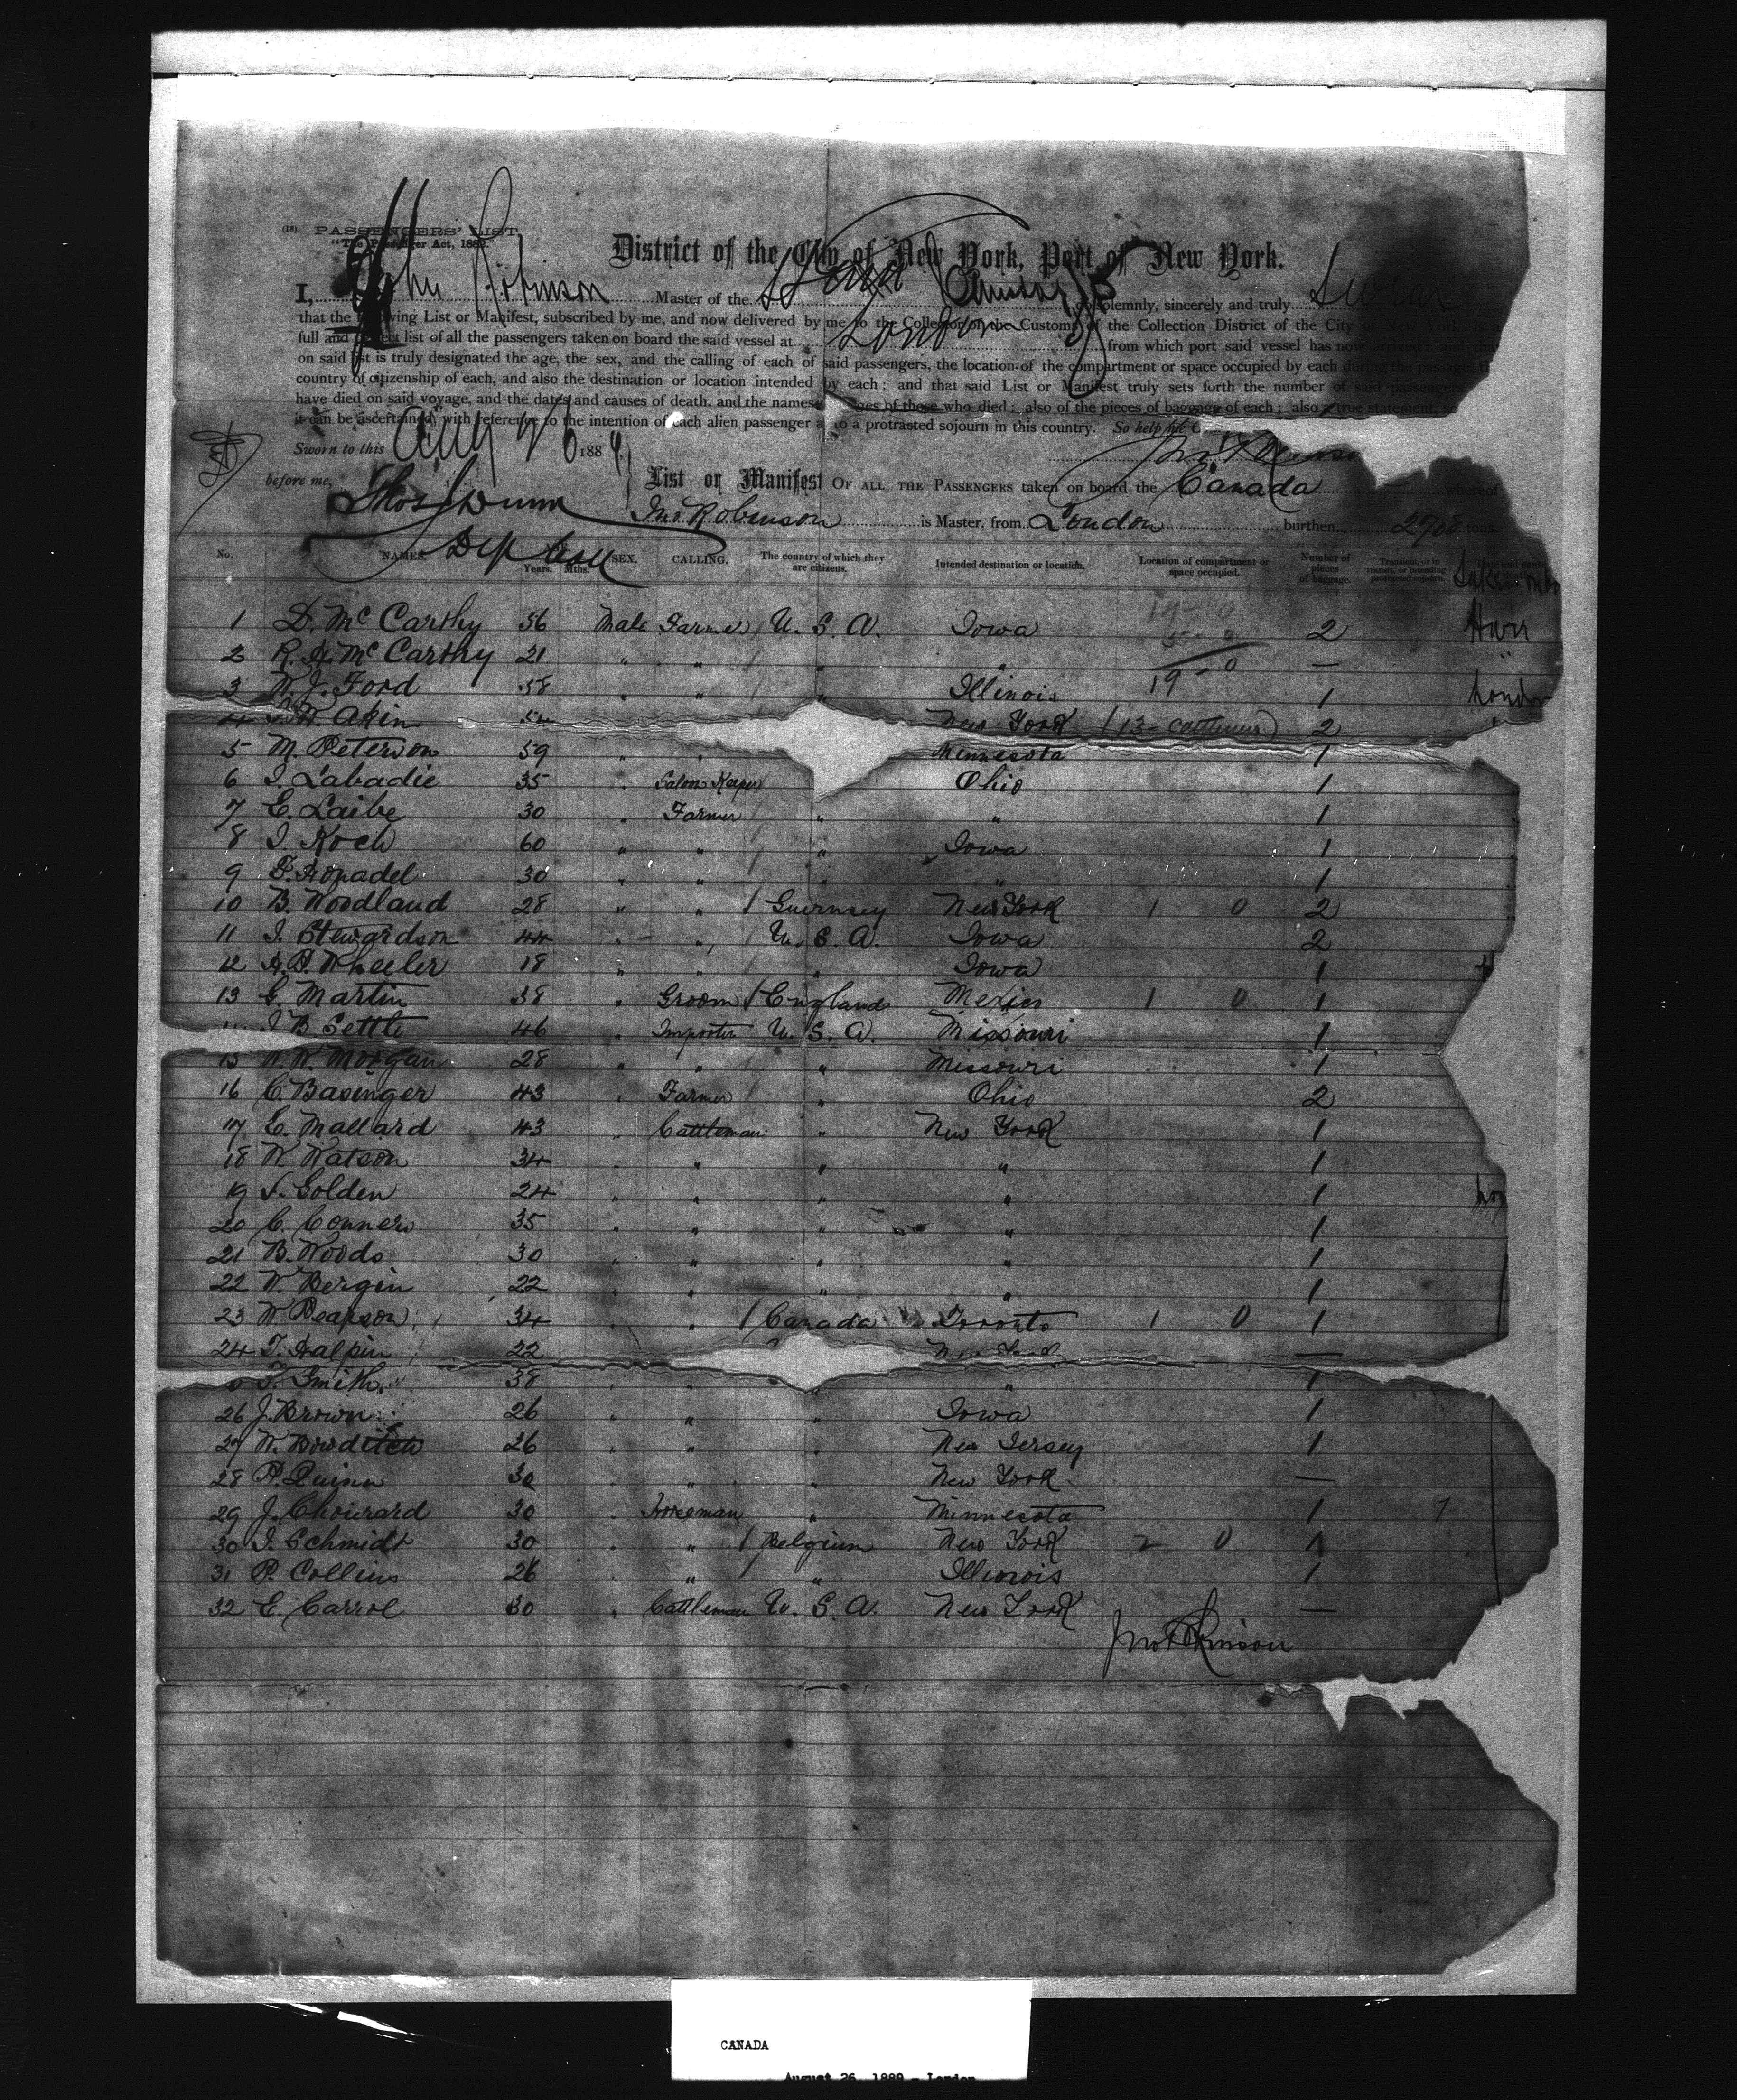 (18) PASSENGERS' LIST.
"The Passenger Act, 1882."
District of the City of New York, Port of New York.
I, John Robinson Master of the Steam Canada do solemnly, sincerely and truly Swear
that the following List or Manifest, subscribed by me, and now delivered by me to the Collector of the Customs of the Collection District of the City of New York, is a
full and perfect list of all the passengers taken on board the said vessel at London from which port said vessel has now arrived; and that
on said list is truly designated the age, the sex, and the calling of each of said passengers, the location of the compartment or space occupied by each during the passage, the
country of citizenship of each, and also the destination or location intended by each; and that said List or Manifest truly sets forth the number of said passengers
have died on said voyage, and the dates and causes of death, and the names ages of those who died; also of the pieces of baggage of each; also a true statement, so
it can be ascertained, with reference to the intention of each alien passenger a to a protrasted sojourn in this country. So help me
Sworn to this Aug 26 1889
before me, Thos Dunn
Dep Coll
List or Manifest OF ALL THE PASSENGERS taken on board the Canada whereof
Jno Robinson is Master, from London burthen 2708 tons
No. NAMES Years. Mths. SEX. CALLING. The country of which they are citizens. Intended destination or location. Location of compartment or space occupied. Number of pieces of baggage. Transient, or in transit, or intending protracted sojourn.
1 D. Mc Carthy 56 Male Farmer U. S. A. Iowa 2
2 R. A. Mc Carthy 21 " " " " —
3 W. J. Ford 58 " " " Illinois 19 0 1 London
4 Akin New York (13 - cattlemen) 2
5 M. Peterson 59 " " " Minnesota 1
6 I. Labadie 35 " Saloon Keeper Ohio 1
7 E. Laibe 30 " Farmer " " 1
8 I. Koch 60 " " " Iowa 1
9 F. Hopadel 30 " " " " 1
10 B. Woodland 28 " " Guernsey New York 1 0 2
11 I. Stewardson 44 " " U. S. A. Iowa 2
12 A. P. Wheeler 18 " " " Iowa 1
13 G. Martin 38 " Groom England Mexico 1 0 1
I B Settle 46 " Importer U. S. A. Missouri 1
15 W. W. Morgan 28 " " " Missouri 1
16 C. Basinger 43 " Farmer " Ohio 2
17 E. Mallard 43 " Cattleman " New York 1
18 W Watson 34 " " " " 1
19 S. Golden 24 " " " " 1
20 C. Conners 35 " " " " 1
21 B. Woods 30 " " " " 1
22 W. Bergin 22 " " " " 1
23 W Pearson 34 " " Canada Toronto 1 0 1
24 T. Halpin 22 New York —
F. Smith 38 " " " " 1
26 J. Brown 26 " " " Iowa 1
27 W. Bowditch 26 " " " New Jersey 1
28 P. Quinn 30 " " " New York —
29 J. Chourard 30 " Horseman " Minnesota 1
30 I. Schmidt 30 " " Belgium New York 2 0 1
31 P. Collins 26 " " " Illinois 1
32 E. Carrol 30 " Cattleman U. S. A. New York —
Jno Robinson
CANADA
August 26, 1889 - London